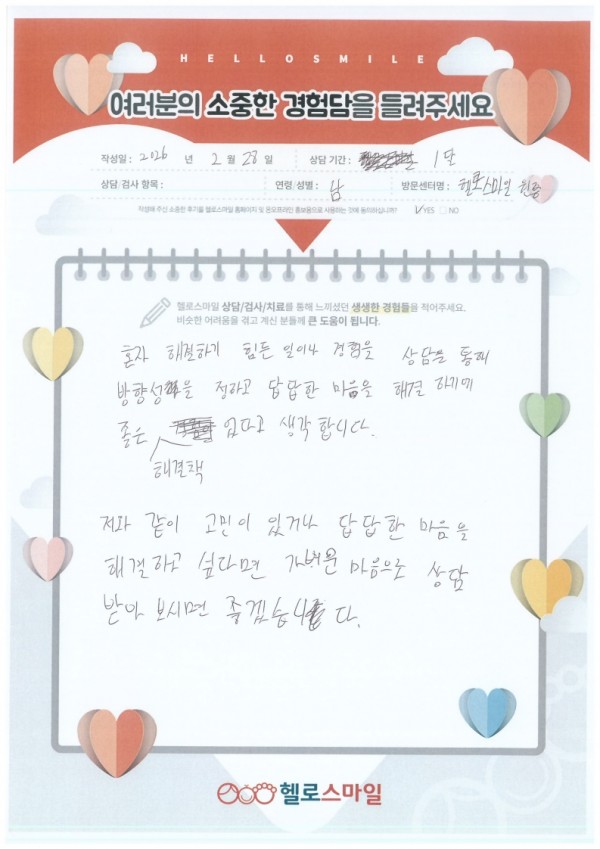 HELLOSMILE
여러분의 소중한 경험담을 들려주세요
작성일 : 2026 년 2 월 28 일 상담 기간 : 1단
상담/검사 항목 : 연령/성별 : 남 방문센터명 : 헬로스마일
작성해 주신 소중한 후기를 헬로스마일 홈페이지 및 온오프라인 홍보용으로 사용하는 것에 동의하십니까? ✓YES □NO
헬로스마일 상담/검사/치료를 통해 느끼셨던 생생한 경험들을 적어주세요.
비슷한 어려움을 겪고 계신 분들께 큰 도움이 됩니다.
혼자 해결하기 힘든 일이나 경험을 상담을 통해
방향성을 정하고 답답한 마음을 해결 하기에
좋은 없다고 생각합니다.
해결책
저와 같이 고민이 있거나 답답한 마음을
해결하고 싶다면 가벼운 마음으로 상담
받아 보시면 좋겠습니다.
헬로스마일